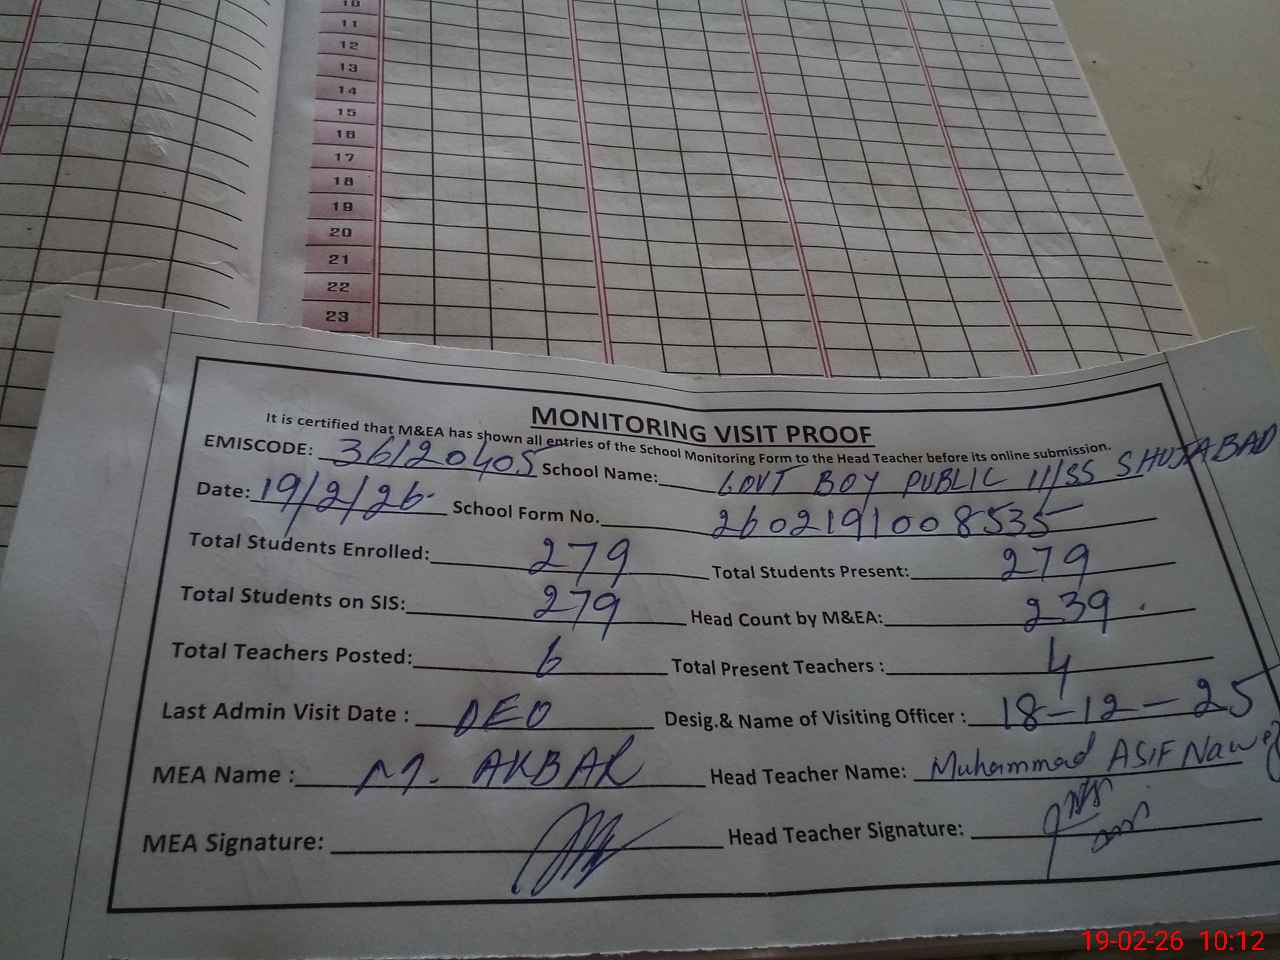 10
11
12
13
14
15
16
17
18
19
20
21
22
23
MONITORING VISIT PROOF
It is certified that M&EA has shown all entries of the School Monitoring Form to the Head Teacher before its online submission.
EMISCODE: 36120405 School Name: GOVT BOY PUBLIC II/SS SHUJABAD
Date: 19/2/26 School Form No. 2602191008535
Total Students Enrolled: 279 Total Students Present: 279
Total Students on SIS: 279 Head Count by M&EA: 239
Total Teachers Posted: 6 Total Present Teachers : 4
Last Admin Visit Date : DEO Desig.& Name of Visiting Officer : 18-12-25
MEA Name : M. AKBAR Head Teacher Name: Muhammad ASIF Nawaz
MEA Signature: Head Teacher Signature:
19-02-26 10:12